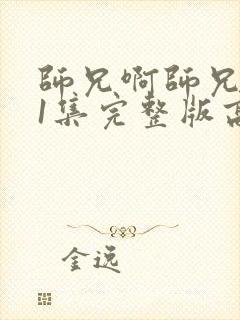 師兄啊師兄
1集完整版高
金逸